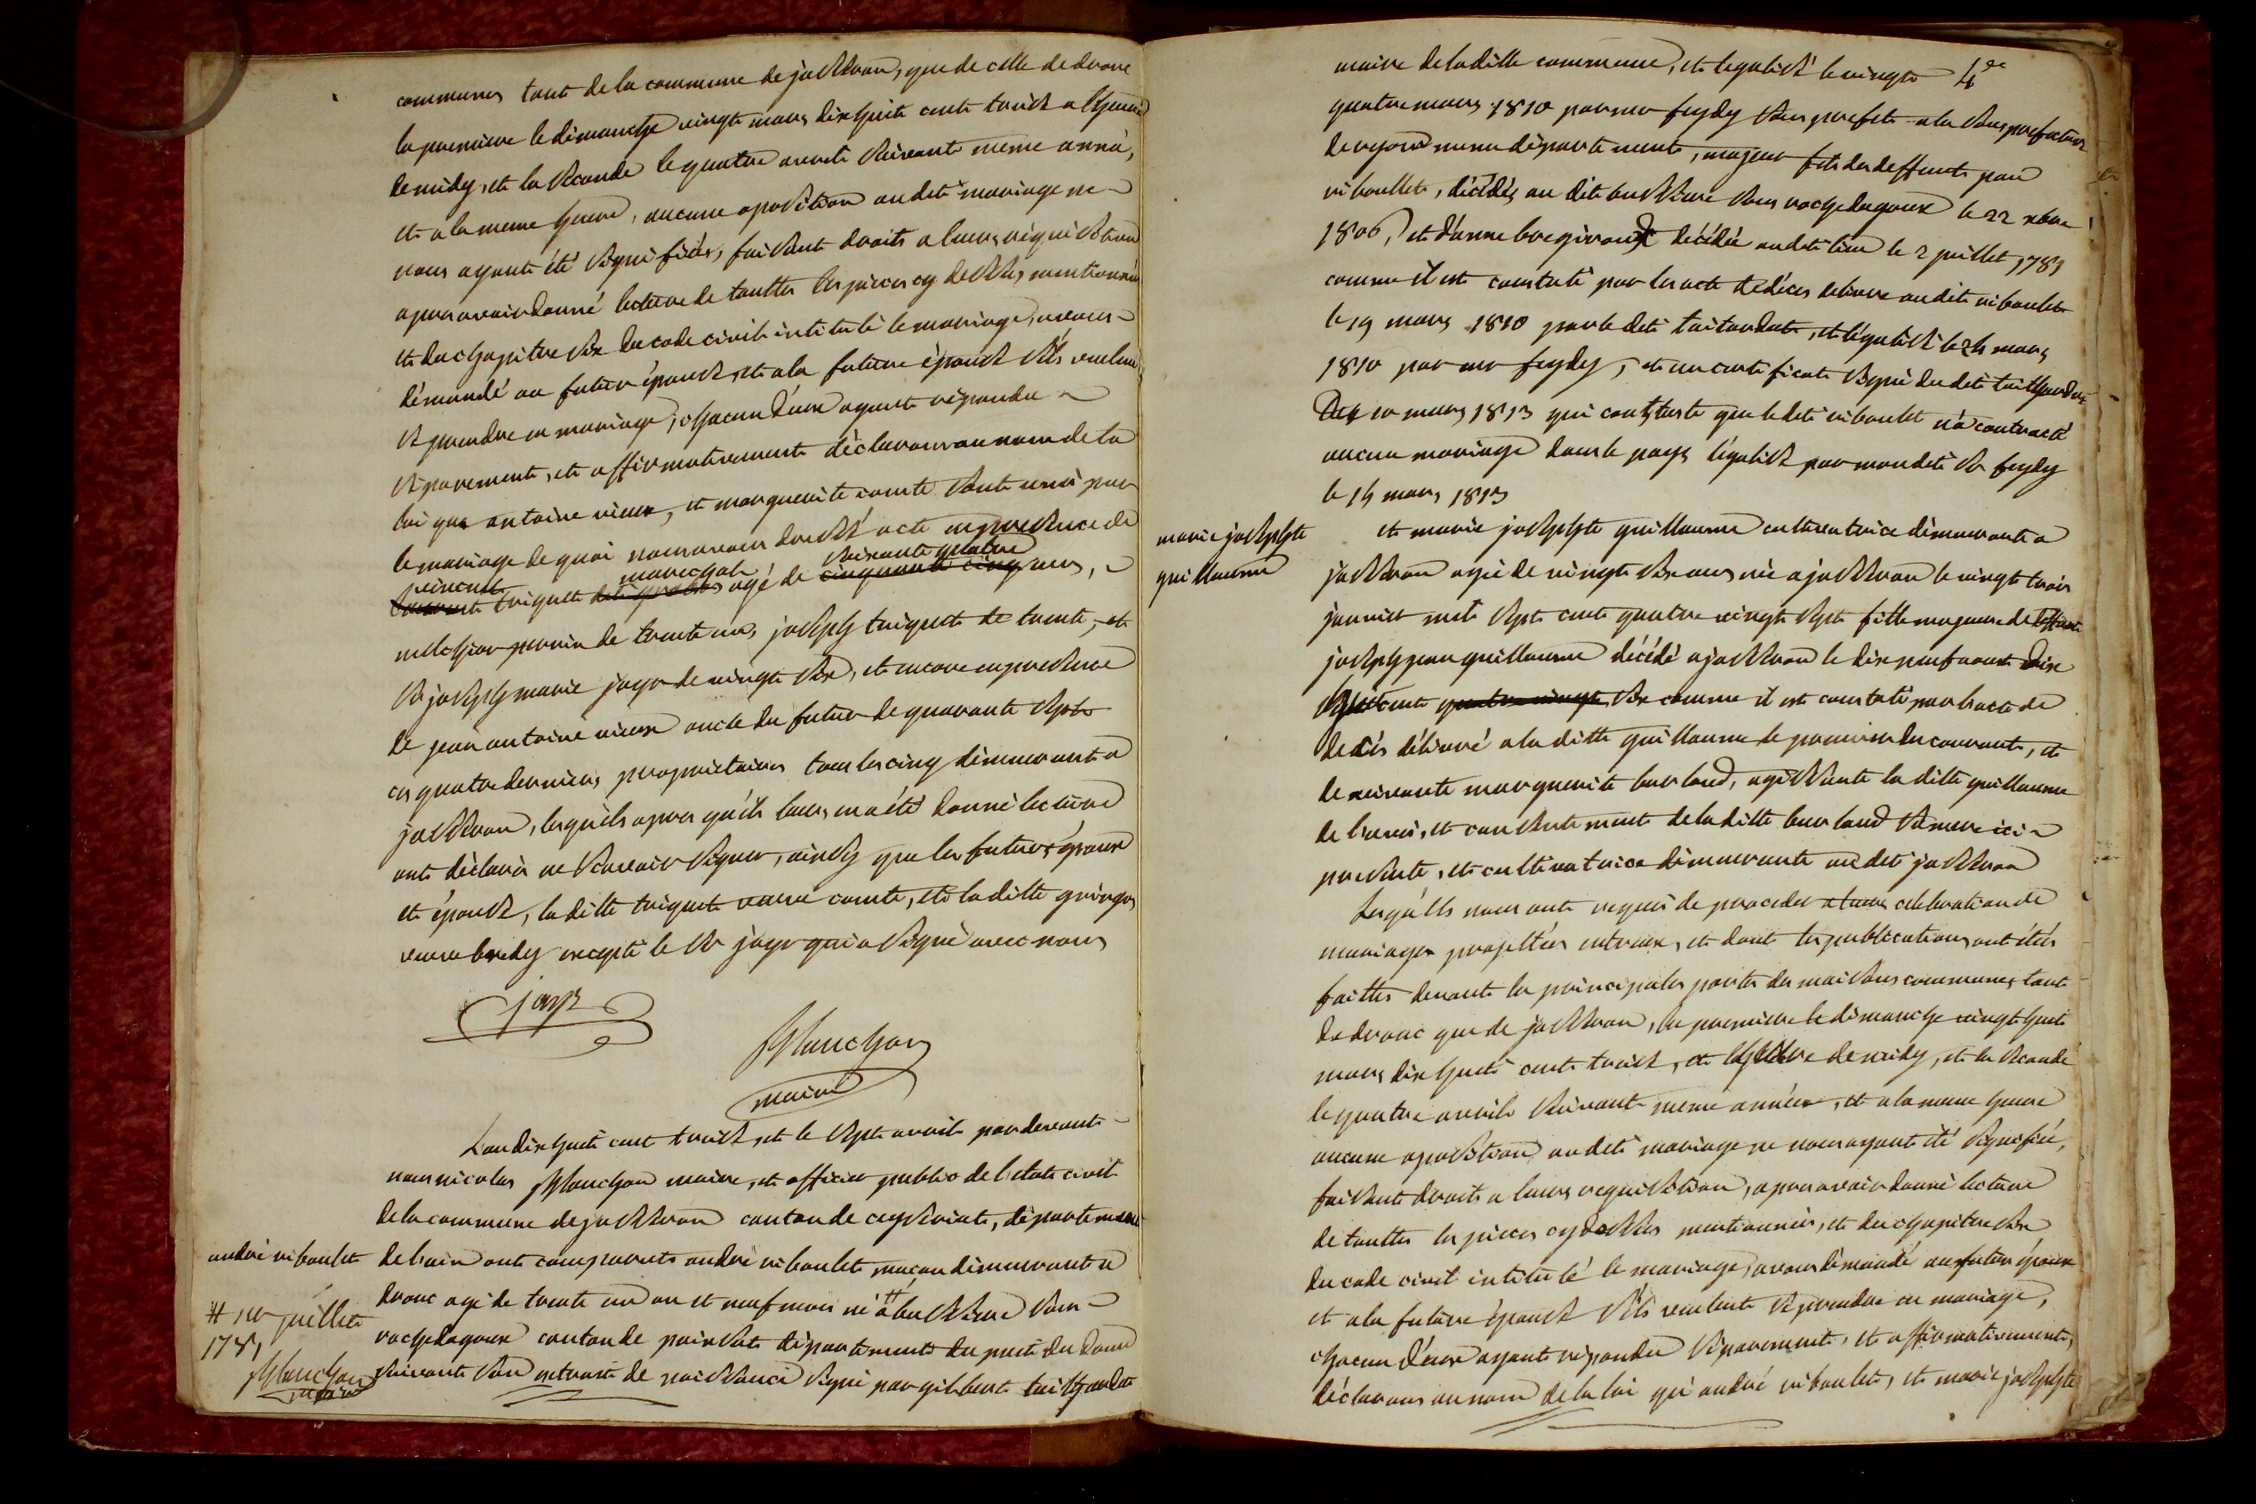 communes tant de la commune de jasseron, que de celle de drom
la premiere le dimanche vingt mars dix huit cent treize a lheure
de midy, et la seconde le quatre avril suivant même année,
et a la meme heure, aucune oposition audit mariage ne
nous ayant été signifiées, faisant droits a leurs réquisition
apres avoir donné lecture de touttes les pieces cy dessus mentionnées
et du chapitre six du code civil intitulé le mariage, avons
démandé au futur époux, et a la future épouse s'ils veulent
se prendre en mariage, chacun d'eux ayant répondu
séparement, et affirmativement déclarons au nom de la
loi que antoine vieux, et marguerite comte sont unis par
le mariage de quoi nous avons dressé acte en presence de
vincent triquet marechal agé de soixante quatre ans,
melchior perrin de trente un, joseph triquet de trente, et
sr joseph marie jayr de vingt six, et encore en presence
de jean antoine vieux oncle du futur de quarante sept
ces quatre derniers proprietaires tous les cinq démeurant a
jasseron, lesquels apres qu'ils leurs en a été donné lecture
ont déclaré ne scavoir signer, ainsy que les futurs époux
et épouse, la ditte triquet veuve comte, et la ditte
veuve excepté le sr jayr qui a signé avec nous
jayr
Planchon
maire
L'an dix huit cent treize, et le sept avril pardevant
nous nicolas Planchon maire, et officier public de l'etat civil
de la commune de jasseron canton de ceyseriat, département
andré riboulet
de l'ain ont comparuts andré riboulet maçon démeurant a
drom agé de trente un an et neuf mois né # a bussiere sous
# 1er juillet
1781
Planchon
maire
rochedagoux canton de pionsat département du puit du dome
suivant son extrait de naissance signé par gilbert taithardat
maire de laditte commune, et legalisé le vingt
4e
quatre mars 1810 par mr feydy sous prefet a la sous prefecture
de riom même département, majeur fils des deffunts jean
riboullet, décédés au dit bussiere sous rochedagoux le 22 xbre
1806, et d'anne bregiroux décédée audit lieu le 2 juillet 1789
comme il est constaté par les acte de déces delivré audit riboulet
le 19 mars 1810 par le dit taitardat, et légalisé le 24 mars
1810 par mr feydy, et un certificat signé du dit taithardat
du 10 mars 1813 qui constaste que le dit riboulet n'a contracté
aucun mariage dans le pays légalisé par mondit sr feydy
le 14 mars 1813
marie josephte
guillaume
et marie josephte guillaume cultivatrice démeurant a
jasseron agée de vingt six ans née a jasseron le vingt trois
janvier mil sept cent quatre vingt sept fille mageure de deffunt
joseph jean guillaume décédé a jasseron le dix neuf aout dix
huit cent quatre vingt six comme il est constaté par l'acte de
decés délivré a la ditte guillaume le premier du courant, et
de vivante marguerite burtoud, agissante la ditte guillaume
de l'avis, et consentement de la ditte burtoud sa mere ici
presente, et cultivatrice démeurante au dit jasseron
Lesqu'els nous ont requis de proceder a leurs celebration de
mariage projettée entreux, et dont les publications ont étés
faittes devant les principales portes des maisons communes tant
de drom que de jasseron, la premiere le dimanche vingt huit
mars dix huit cent treize, et lheure de midy, et la seconde
le quatre avril suivant meme année, et a la meme heure
aucune oposition au dit mariage ne nous ayant été signifiée,
faisant droits a leurs requisition, apres avoir donné lecture
de touttes les pieces cy dessus mentionnées, et du chapitre six
du code civil intitulé le mariage, avons démandé aux futur époux
et a la future épouse s'ils veulent se prendre en mariage,
chacun d'eux ayant répondu séparement, et affirmativement,
déclarons au nom de la loi qu'andré riboulet, et marie josephte